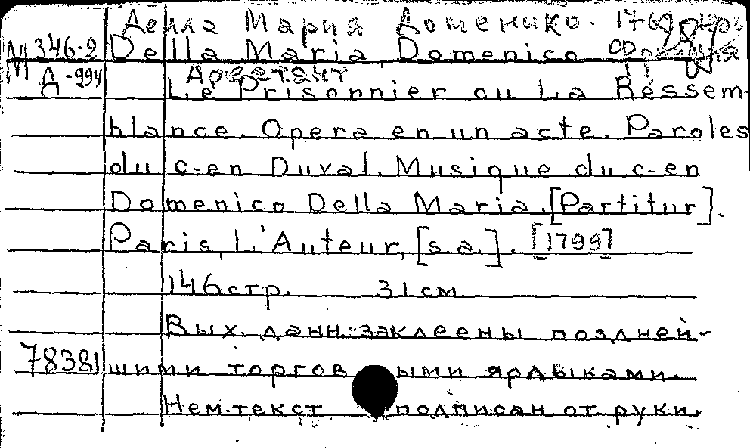 Делла Мария Доменико. 176
М 346-2 Della Maria, Domenico
Д-994 Арестант
Le Prisonnier ou La Ressem-
blance. Opera en un acte. Paroles
du c-en Duval. Musique du c-en
Domenico Della Maria. [Partitur].
Paris, L'Auteur, [s.a.]. [1799]
146 стр. 31 см
Вых. данн. заклеены поздней-
78381 шими торгов ыми ярлыками.
Нем. текст подписан от руки.